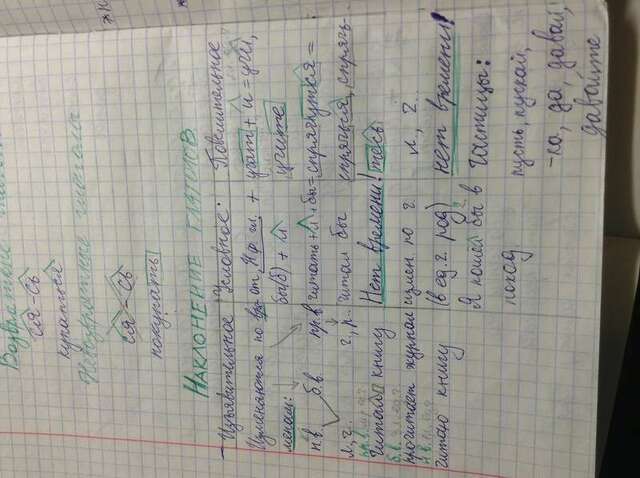 Возвратные
ся-сь
купаться
Невозвратные глаголы
ся-сь
покупать
НАКЛОНЕНИЕ ГЛАГОЛОВ
Изъявительное Условное Повелительное
Изменяются по от Н.ф. гл. + учат + и = учи,
менам: бы(б) + л учите
н.в. б.в. пр.в читать + л + бы = спрягутся =
л, ч. ч, р. читал бы спрягуся, спрячь-
Читал книгу Нет времени! тесь
прочитает журнал измен по ч л, ч.
читаю книгу (в ед ч. род) нет времени!
Я пошёл бы в частицы:
поход пусть, пускай,
-ка, да, давай,
давайте